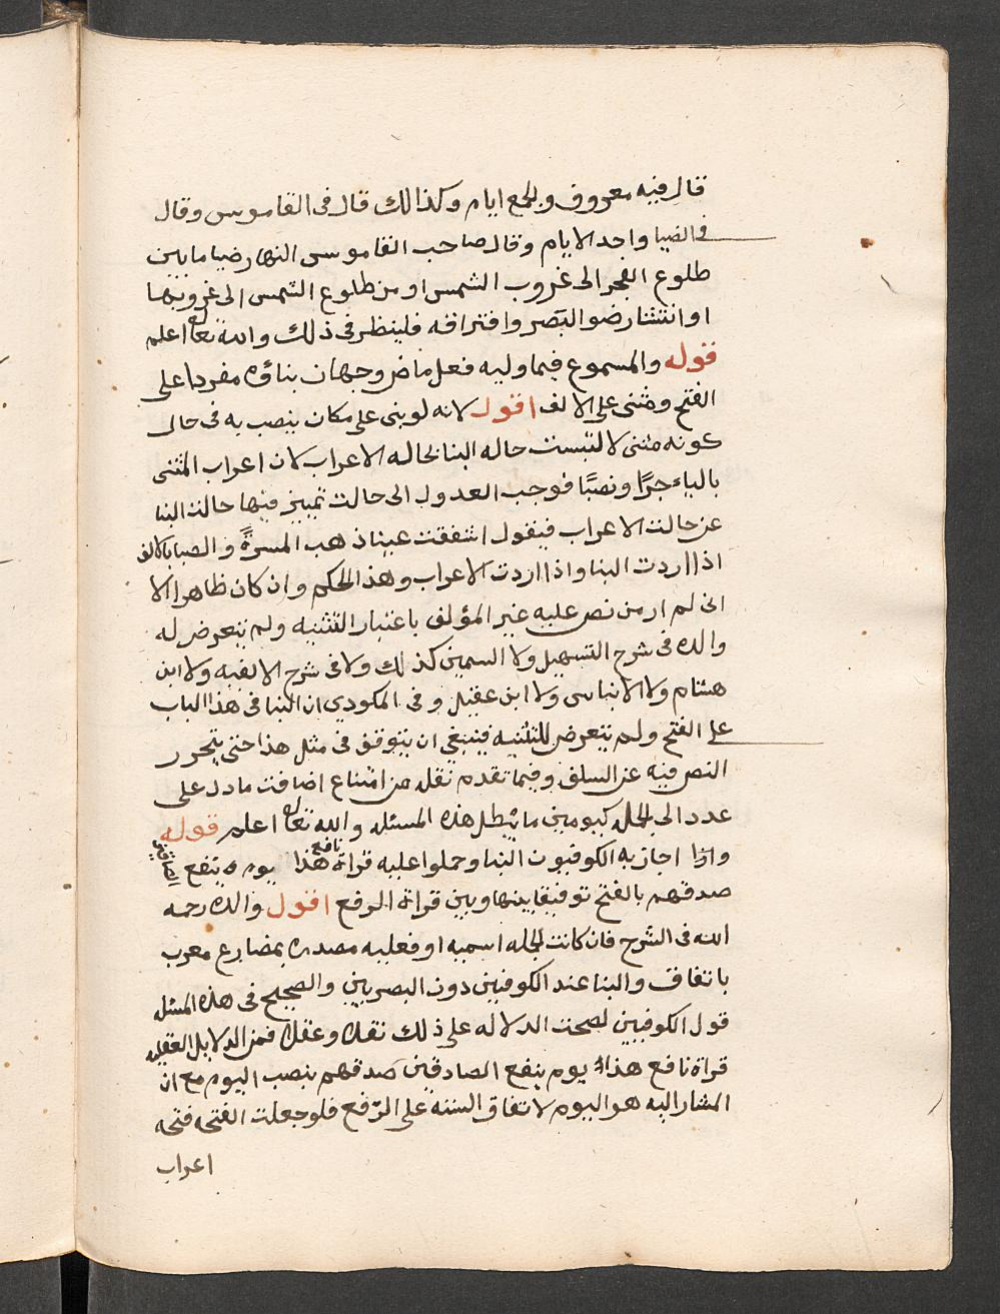 قال فيه معروف والجمع ايام وكذالك قال فى القاموس وقال
فى الضيا واحد الايام وقال صاحب القاموس النهار ضيا ما بين
طلوع الفجر الى غروب الشمس او من طلوع الشمس الى غروبها
او انتشار ضو البَصر وافتراقه فلينظر فى ذلك والله تعالى اعلم
قوله والمسموع فيما وليه فعل ماض وجهان بناؤه مفردا على
الفتح ومثنى على الالف اقول لانه لو بنى على مكان ينصب به فى حال
كونه مثنى لالتبست حاله البنا بحاله الاعراب لان اعراب المثنى
بالياء جرًّا ونصبًا فوجب العدول الى حالت تميز فيها حالت البنا
عن حالت الاعراب فيقول اتفقت عينا ذهب المسرة والصبا بالالف
اذا اردت البنا واذا اردت الاعراب وهذ الحكم وان كان ظاهرا الا
انى لم ار من نص عليه غير المؤلف باعتبار التثنيه ولم يتعرض له
والده فى شرح التسهيل ولا السمين كذلك ولا فى شرح الالفيه ولا ابن
هشام ولا الابناسى ولا ابن عقيل وفى المكودي ان البنا فى هذا الباب
على الفتح ولم يتعرض للتثنيه فينبغي ان يتوقف فى مثل هذا حتى يتحرر
النص فيه عن السلف وفيما تقدم نقله من امتناع اضافت ما دل على
عدد الى الجمل كيومين ما يبطل هذه المسئله والله تعالى اعلم قوله
واذا اجاز به الكوفيون البنا وحملوا عليه قراة نافع هذا يوم ينفع الصادقين
صدقهم بالفتح توفيقا بينها وبين قراة الرفع اقول والده رحمه
الله فى الشرح فان كانت الجمله اسميه او فعليه مصدره بمضارع معرب
باتفاق والبنا عند الكوفيين دون البصريين والصحيح فى هذه المسئله
قول الكوفيين لصحت الدلاله على ذلك نقلا وعقلا فمن الدلايل العقليه
قراة نافع هذا يوم ينفع الصادقين صدقهم بنصب اليوم مع ان
المشار اليه هو اليوم لاتفاق السته على الرّفع فلو جعلت الفتحه فتحه
اعراب